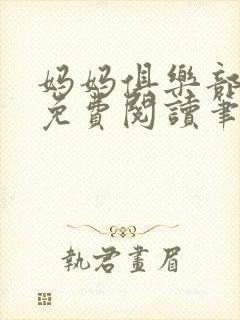 妈妈俱樂部
免費閱讀筆
執君畫眉